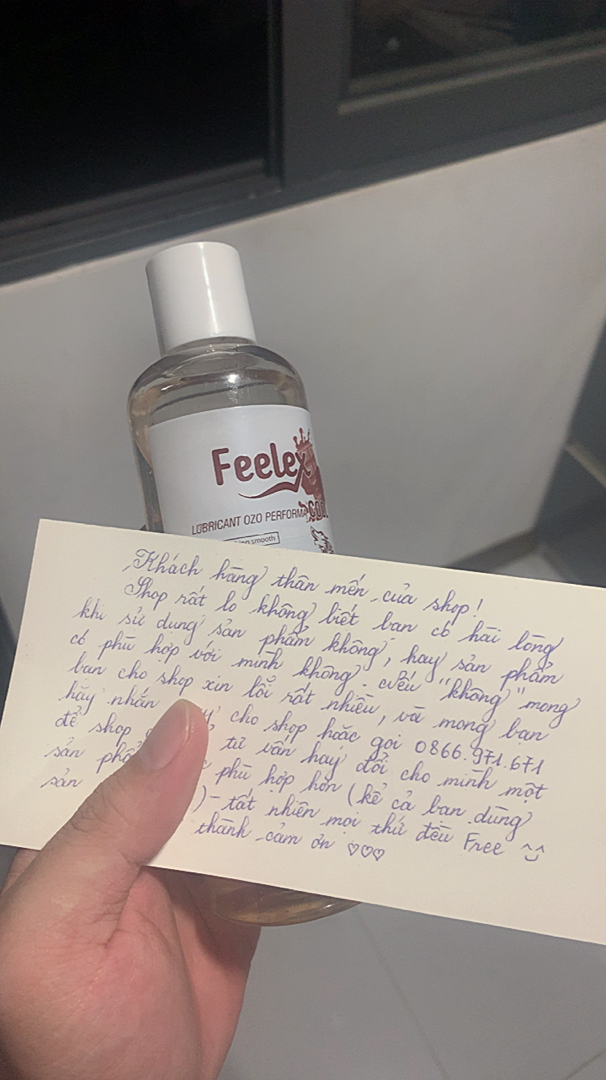 Feelex
LUBRICANT OZO PERFORMA
smooth
Khách hàng thân mến của shop!
Shop rất lo không biết bạn có hài lòng
khi sử dụng sản phẩm không, hay sản phẩm
có phù hợp với mình không. Nếu "không" mong
bạn cho shop xin lỗi rất nhiều, và mong bạn
hãy nhắn cho shop hoặc gọi 0866.971.671
để shop tư vấn hay đổi cho mình một
sản phù hợp hơn (kể cả bạn dùng
sản )- tất nhiên mọi thứ đều Free ^^
thành cảm ơn ♡♡♡